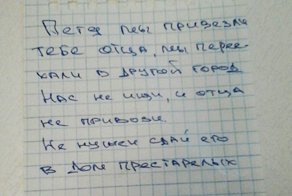 Петя мы привезли
тебе отца, мы перее
хали в другой город
Нас не ищи, и отца
не привози.
Не нужен сдай его
в дом престарелых